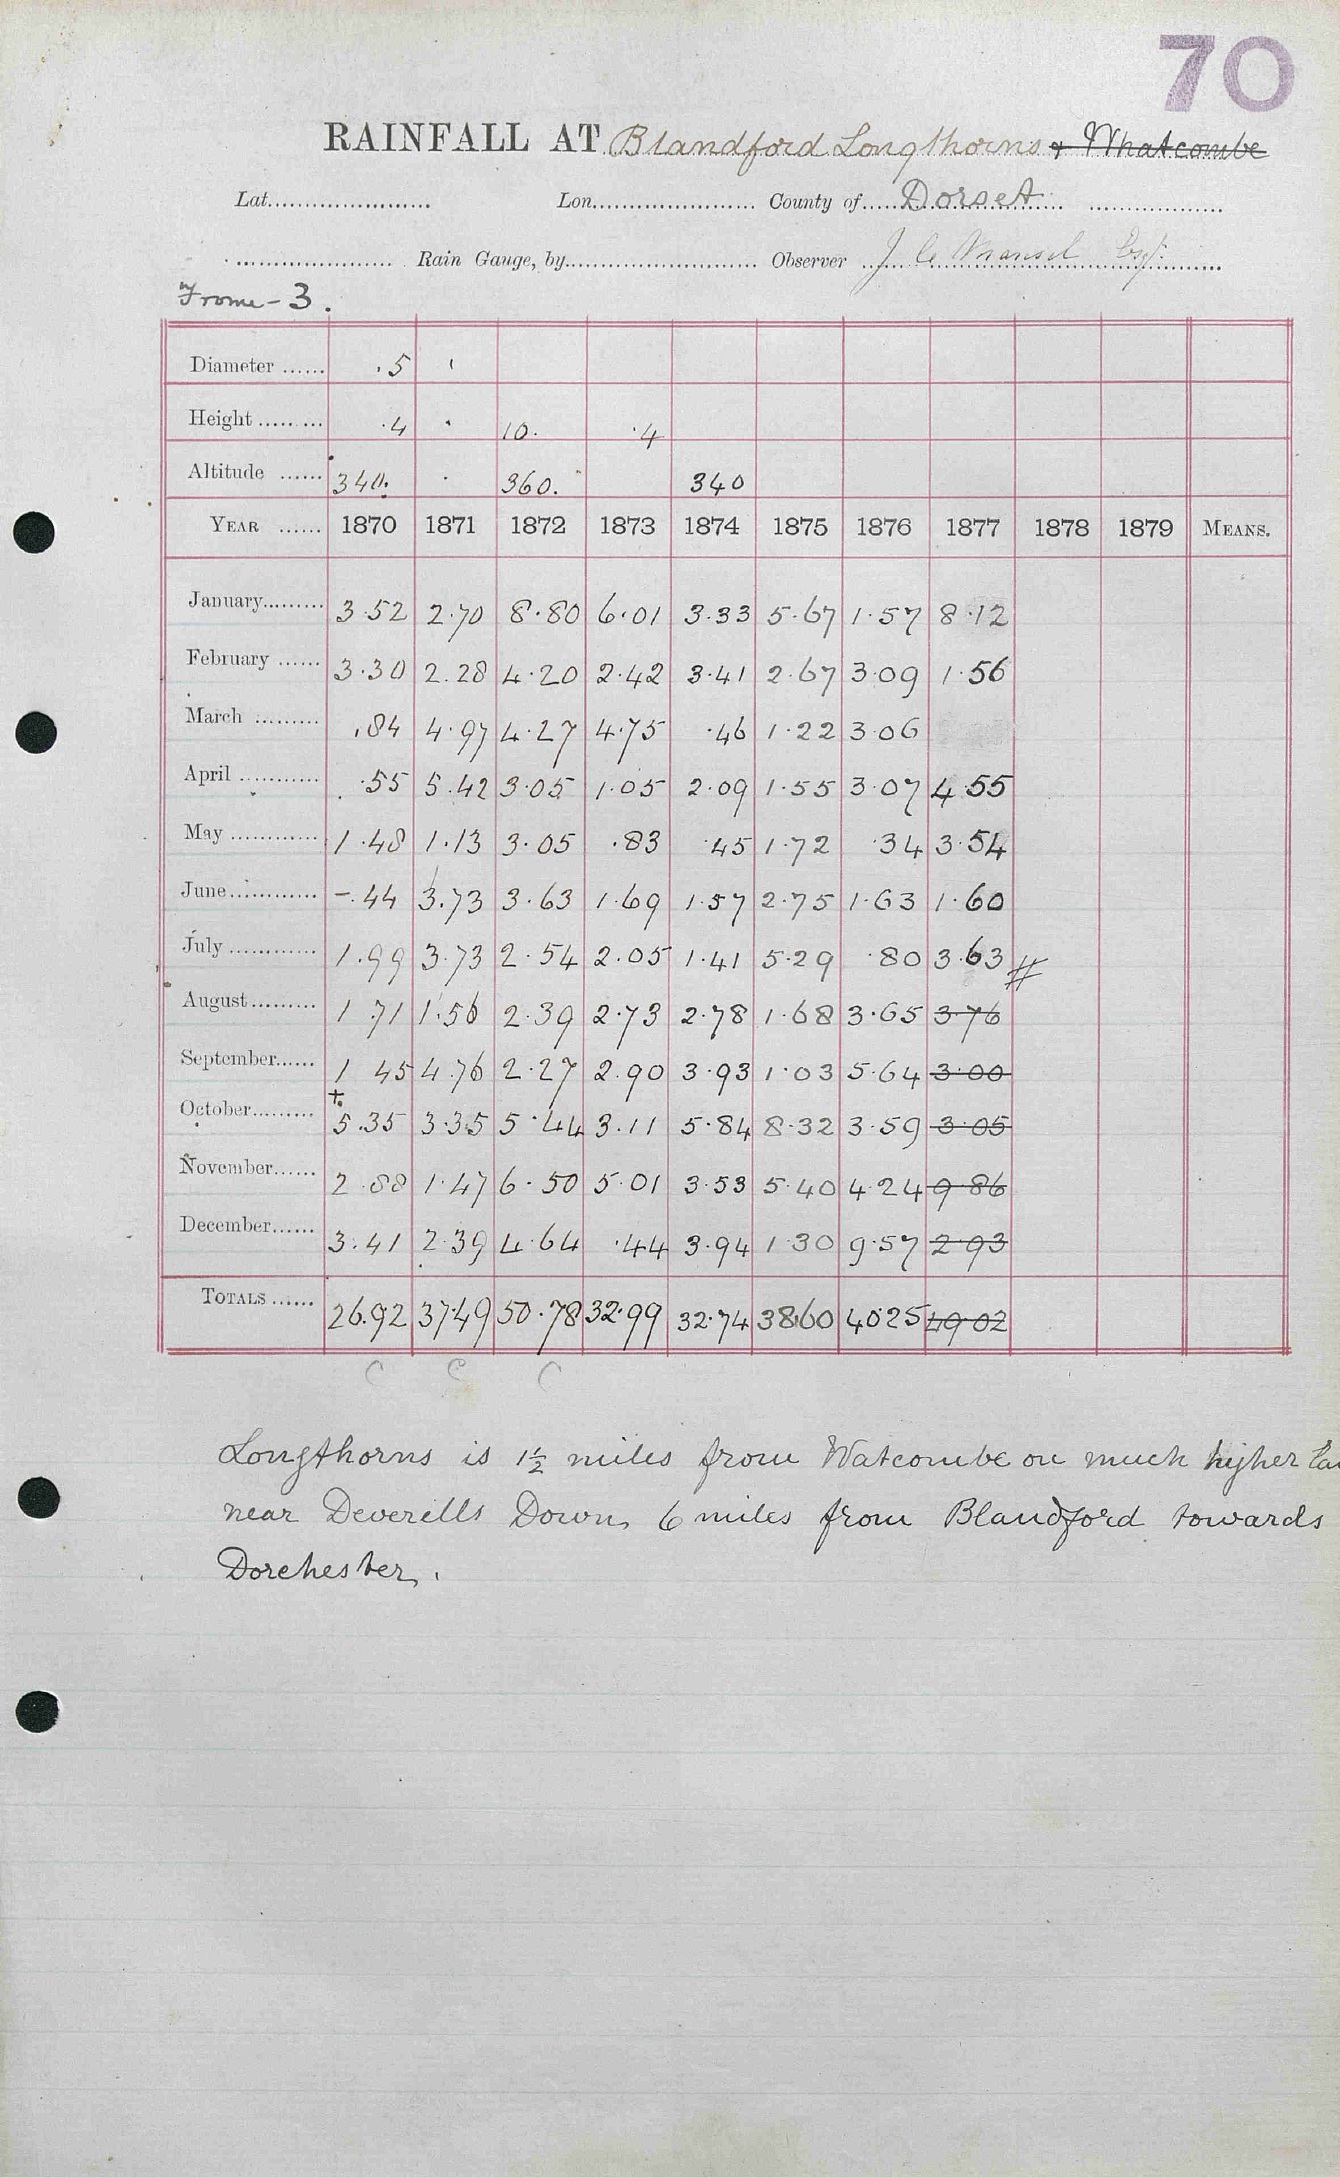 70
RAINFALL AT Blandford Longthorns + Whatcombe
Lat. Lon. County of Dorset
Rain Gauge, by Observer J C Mansel Esq.
Frome - 3.
Diameter .5
Height .4 10. .4
Altitude 340. 360. 340
YEAR 1870 1871 1872 1873 1874 1875 1876 1877 1878 1879 MEANS.
January 3.52 2.70 8.80 6.01 3.33 5.67 1.57 8.12
February 3.30 2.28 4.20 2.42 3.41 2.67 3.09 1.56
March .84 4.97 4.27 4.75 .46 1.22 3.06
April .55 5.42 3.05 1.05 2.09 1.55 3.07 4.55
May 1.48 1.13 3.05 .83 .45 1.72 .34 3.54
June -.44 3.73 3.63 1.69 1.57 2.75 1.63 1.60
July 1.99 3.73 2.54 2.05 1.41 5.29 .80 3.63 #
August 1.71 1.56 2.39 2.73 2.78 1.68 3.65 3.76
September 1 45 4.76 2.27 2.90 3.93 1.03 5.64 3.00
October +5.35 3.35 5.44 3.11 5.84 8.32 3.59 3.05
November 2.88 1.47 6.50 5.01 3.53 5.40 4.24 9 86
December 3.41 2.39 4.64 .44 3.94 1.30 9.57 2.93
TOTALS 26.92 37.49 50.78 32.99 32.74 38.60 40.25 49.02
C C C
Longthorns is 1½ miles from Watcombe on much higher
near Deverells Down, 6 miles from Blandford towards
Dorchester.